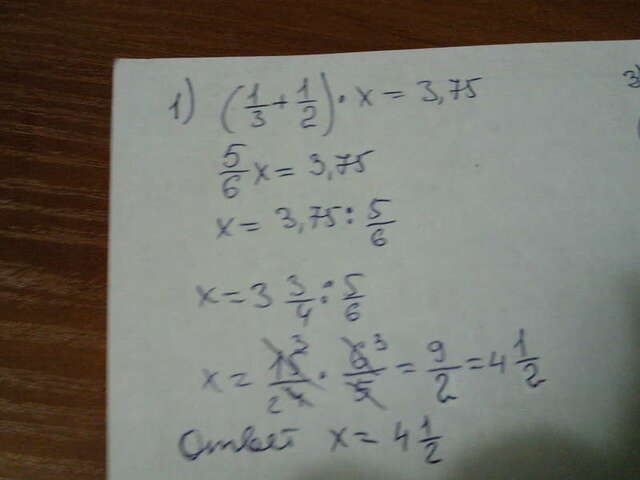 1) (1/3 + 1/2) · x = 3,75
5/6 x = 3,75
x = 3,75 : 5/6
x = 3 3/4 : 5/6
x = 15 3 / 2 4 · 6 3 / 5 = 9/2 = 4 1/2
Ответ x = 4 1/2
3)